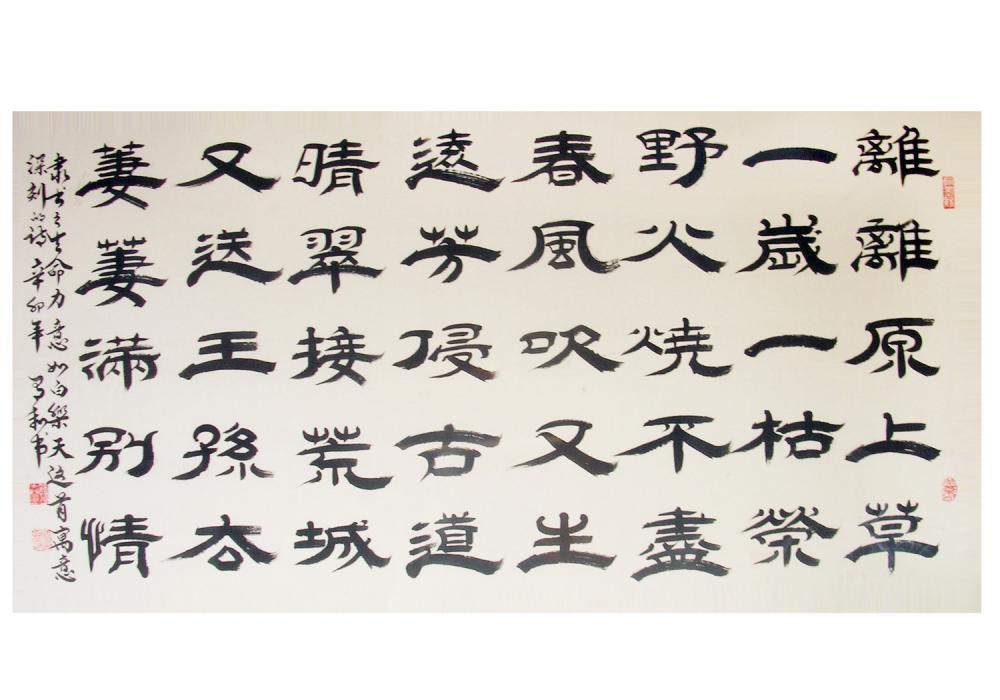 離離原上草
一歲一枯榮
野火燒不盡
春風吹又生
遠芳侵古道
晴翠接荒城
又送王孫去
萋萋滿別情
隶书之生命力意如白樂天这首寓意
深刻的詩 辛卯年 和书